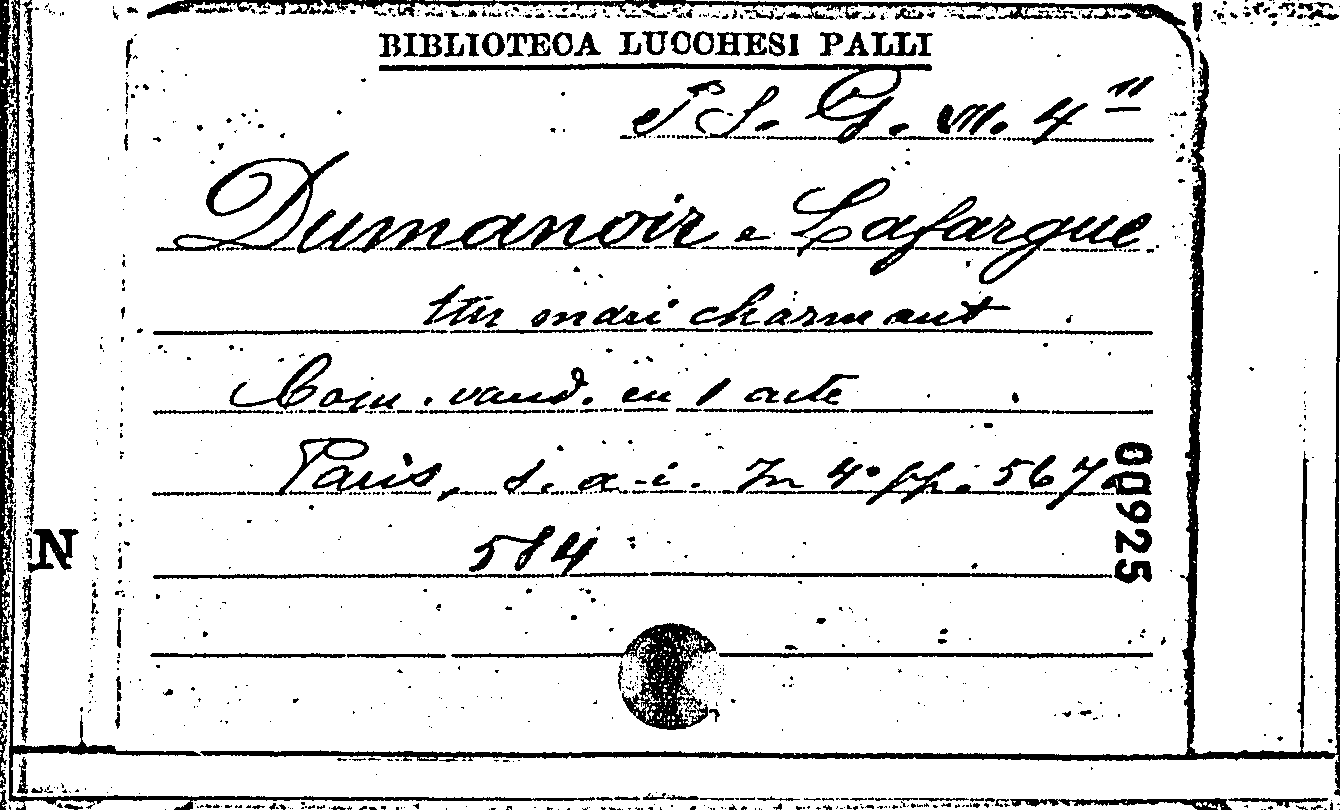 BIBLIOTECA LUCCHESI PALLI
S. G. m. 4 11
Dumanoir e Lafargue
Un mari charmant
Com. vaud. en 1 acte
Paris, s. a. i. In 4° pp. 567.
584
00925
N